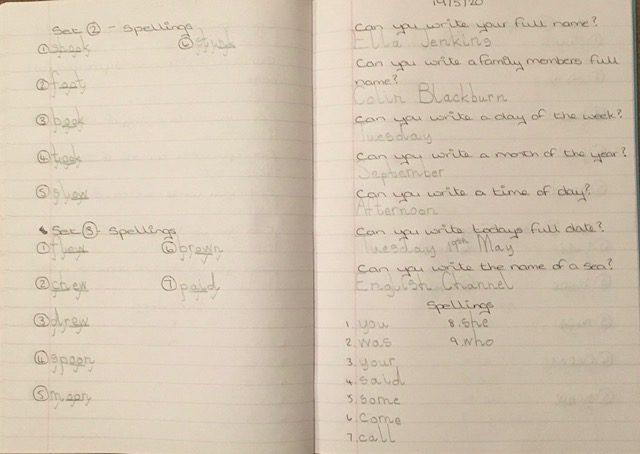 Set ② - Spellings
①
⑥
② foot
③ book
④ took
⑤
Set ③ - Spellings
① flew ⑥
② chew ⑦ paid
③ drew
④ spoon
⑤ moon
19/5/20
Can you write your full name?
Ella Jenkins
Can you write a family members full
name?
Colin Blackburn
Can you write a day of the week?
Tuesday
Can you write a month of the year?
September
Can you write a time of day?
Afternoon
Can you write todays full date?
Tuesday 19th May
Can you write the name of a sea?
English Channel
Spellings
1. you 8. she
2. was 9. who
3. your
4. said
5. some
6. come
7. call